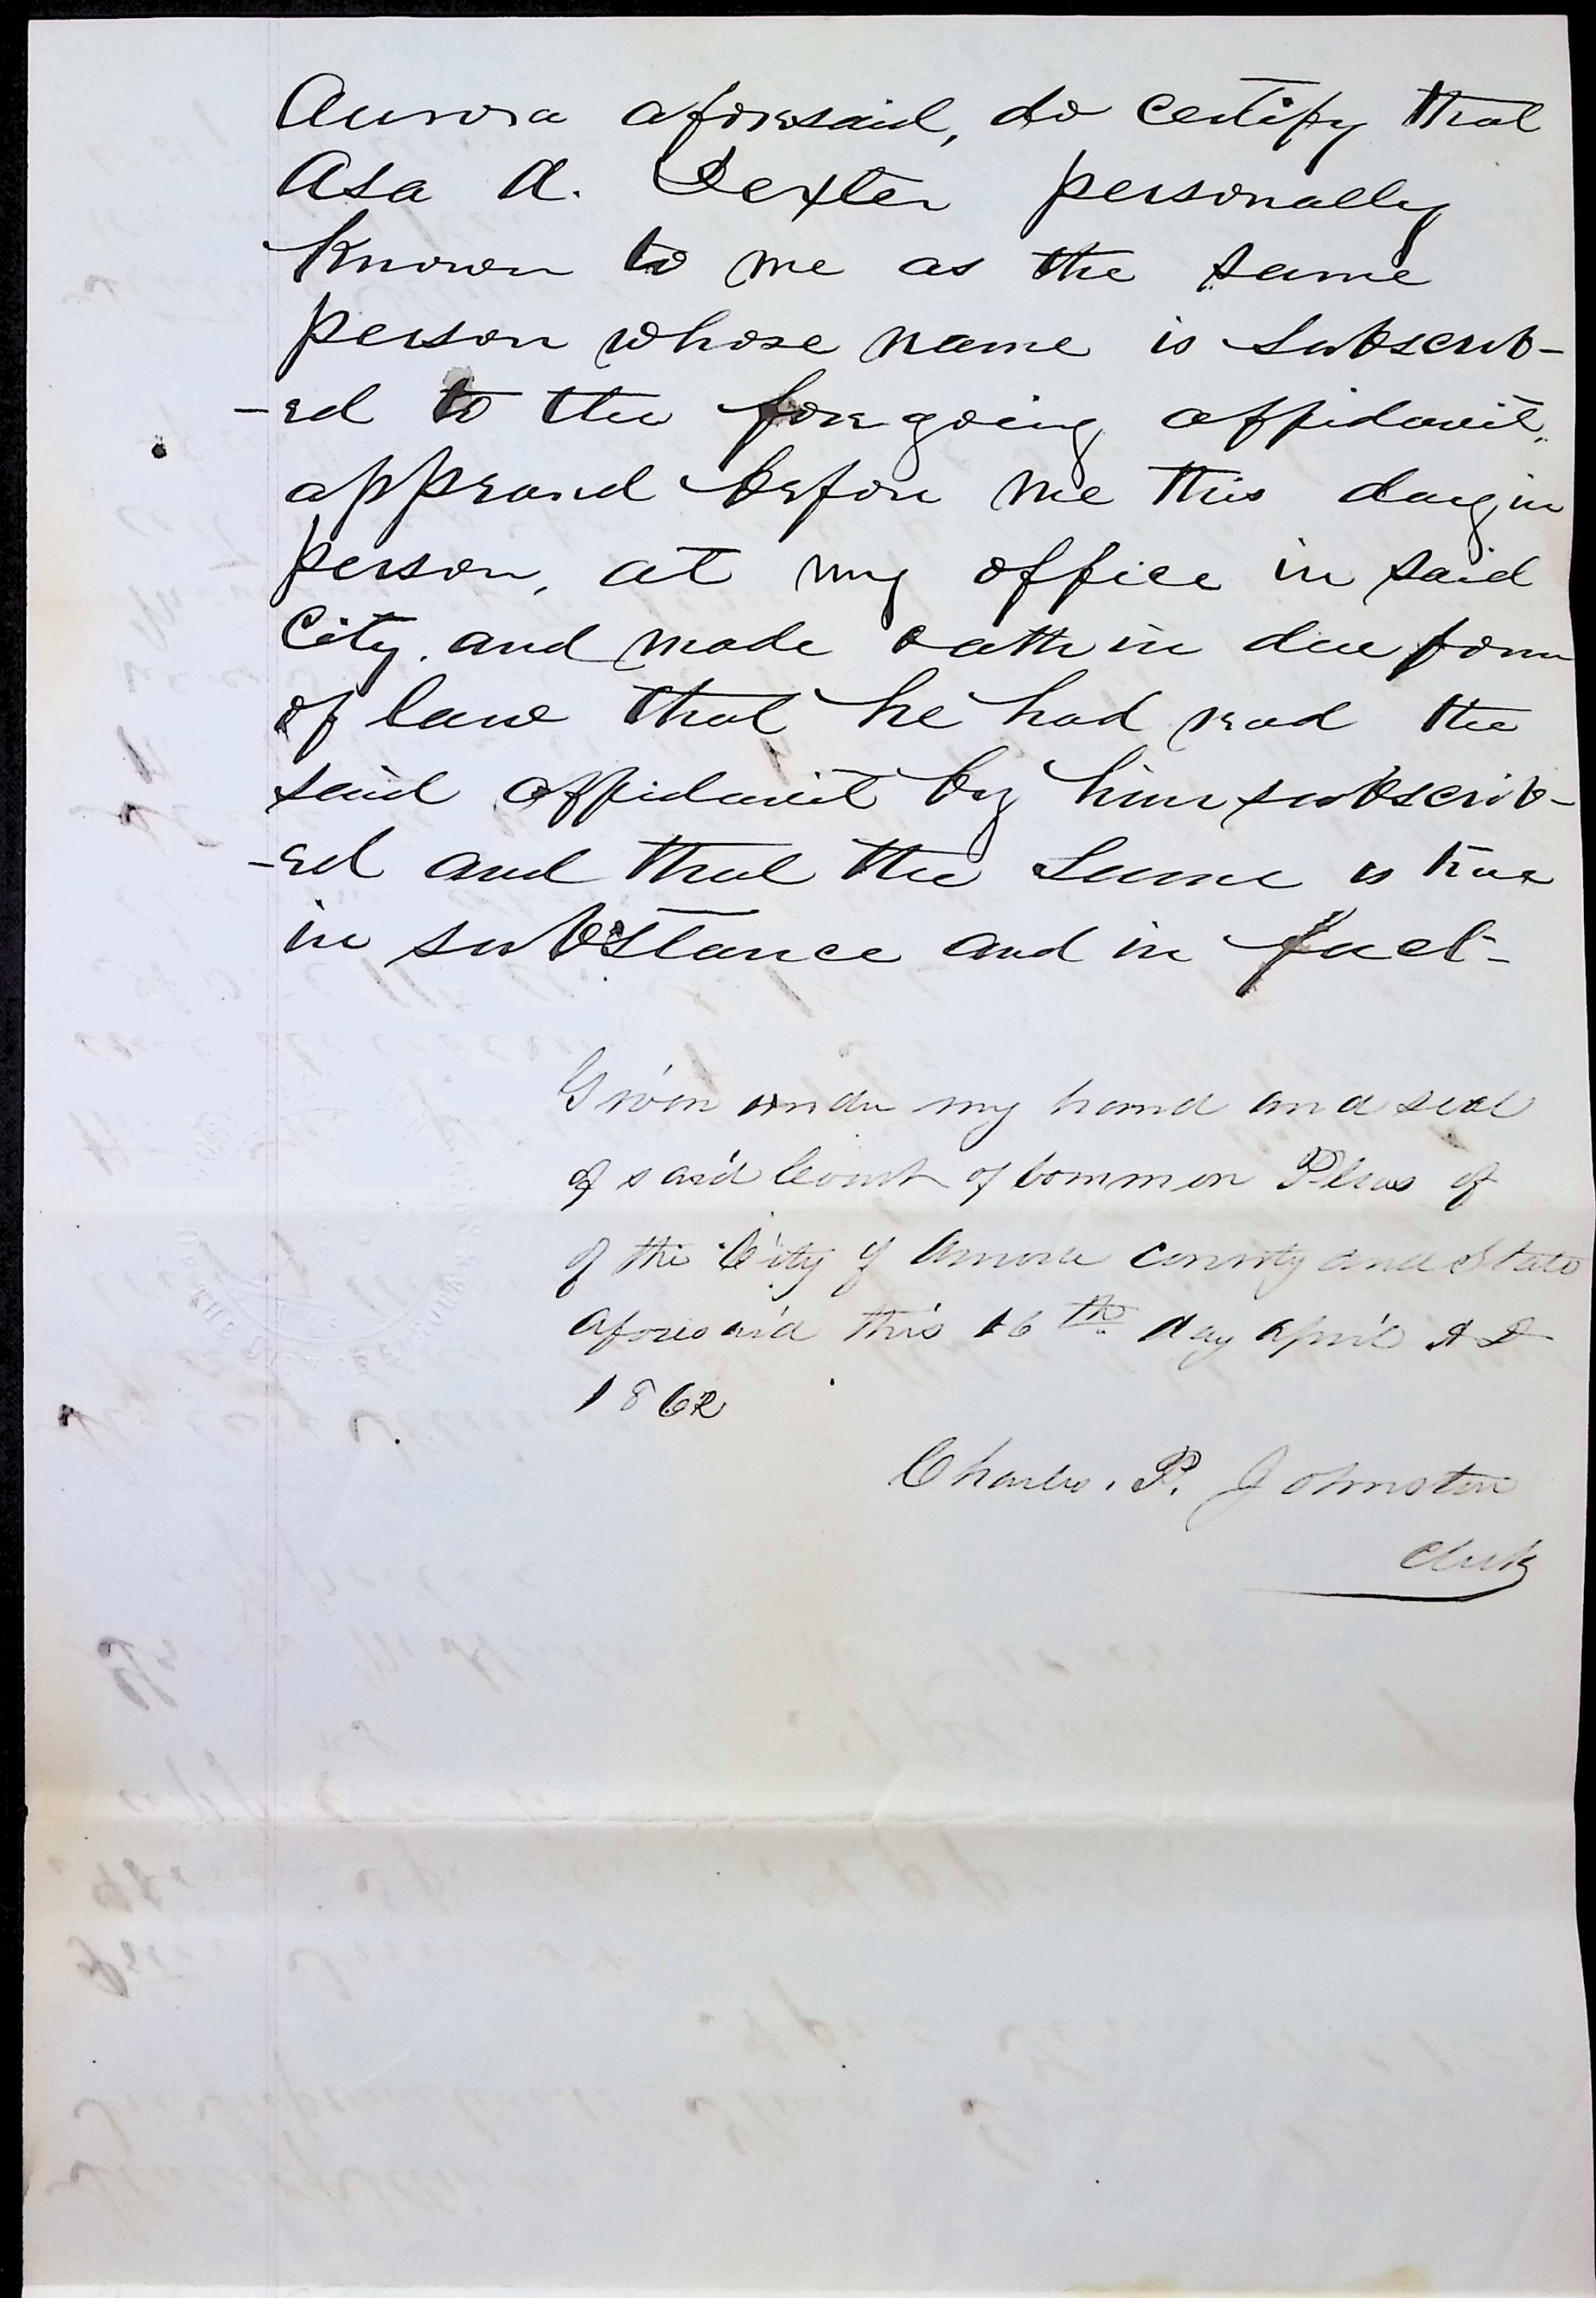 Aurora aforesaid, do certify that
Asa A. Dexter personally
Known to me as the same
person whose name is subscrib-
-ed to the foregoing affidavit,
appeared before me this day in
person, at my office in said
City, and made oath in due form
of law that he had read the
said affidavit by him subscrib-
-ed and that the same is true
in substance and in fact-
Given under my hand and seal
of said Court of Common Pleas of
of the City of Aurora County and State
aforesaid this 16th day April A D
1862
Charles. P. Johnston
Clerk